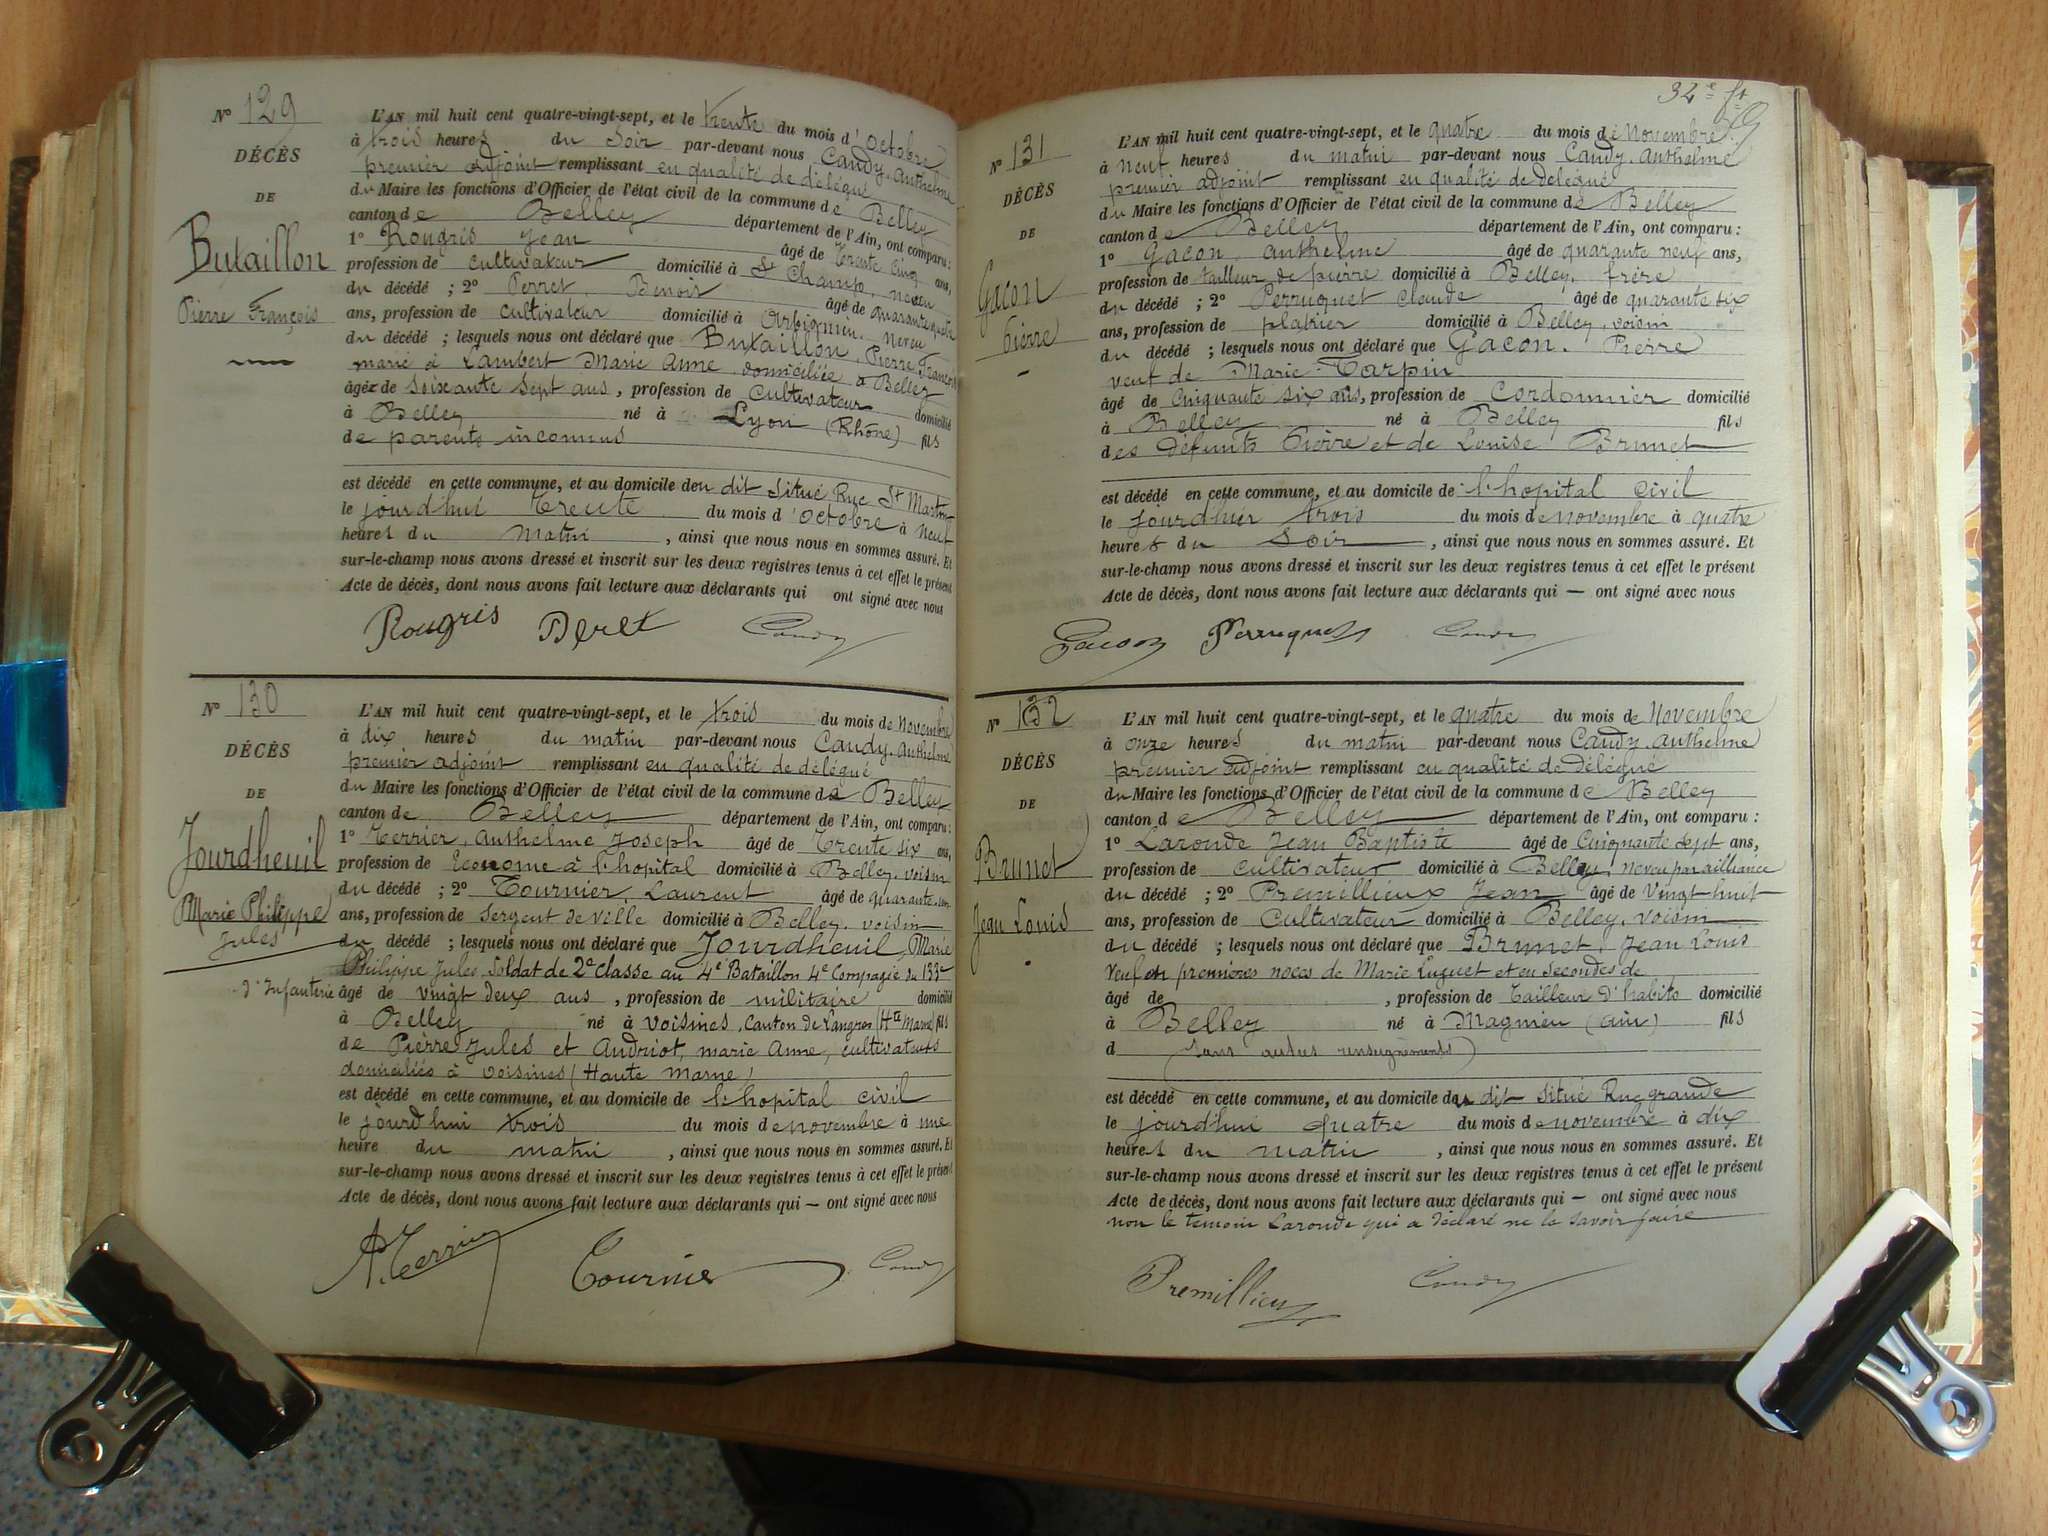 N° 129
DÉCÈS
DE
Butaillon
Pierre François
L'AN mil huit cent quatre-vingt-sept, et le trente du mois d'octobre
à trois heures du soir par-devant nous Candy, Anthelme
premier adjoint remplissant en qualité de délégué
du Maire les fonctions d'Officier de l'état civil de la commune de Belley
canton de Belley département de l'Ain, ont comparu :
1° Rougris Jean âgé de trente cinq ans,
profession de cultivateur domicilié à St Champ, neveu
du décédé ; 2° Perret, Benoit âgé de quarante quatre
ans, profession de cultivateur domicilié à Arbignieu, neveu
du décédé ; lesquels nous ont déclaré que Butaillon, Pierre François
marié à Lambert Marie Anne domiciliée à Belley
âgé de soixante sept ans, profession de cultivateur domicilié
à Belley né à Lyon (Rhône) fils
de parents inconnus
est décédé en cette commune, et au domicile du dit situé Rue St Martin
le jourd'hui trente du mois d'octobre à neuf
heures du matin, ainsi que nous nous en sommes assuré. Et
sur-le-champ nous avons dressé et inscrit sur les deux registres tenus à cet effet le présent
Acte de décès, dont nous avons fait lecture aux déclarants qui ont signé avec nous
Rougris Peret Candy
N° 130
DÉCÈS
DE
Jourdheuil
Marie Philippe
Jules
L'AN mil huit cent quatre-vingt-sept, et le trois du mois de novembre
à dix heures du matin par-devant nous Candy, Anthelme
premier adjoint remplissant en qualité de délégué
du Maire les fonctions d'Officier de l'état civil de la commune de Belley
canton de Belley département de l'Ain, ont comparu :
1° Terrier, Anthelme Joseph âgé de trente six ans,
profession de Econome à l'hopital domicilié à Belley, voisin
du décédé ; 2° Tournier, Laurent âgé de quarante un
ans, profession de sergent de ville domicilié à Belley, voisin
du décédé ; lesquels nous ont déclaré que Jourdheuil, Marie
Philippe Jules, soldat de 2e classe au 4e Bataillon 4e Compagie du 133e
d'Infanterie âgé de vingt deux ans, profession de militaire domicilié
à Belley né à Voisines, canton de Langres (Hte Marne) fils
de Pierre Jules et Andriot, marie Anne, cultivateurs
domiciliés à Voisines (Haute Marne)
est décédé en cette commune, et au domicile de l'hopital civil
le jourd'hui trois du mois de novembre à une
heure du matin, ainsi que nous nous en sommes assuré. Et
sur-le-champ nous avons dressé et inscrit sur les deux registres tenus à cet effet le présent
Acte de décès, dont nous avons fait lecture aux déclarants qui — ont signé avec nous
A. Terrier Tournier Candy
34e ft
N° 131
DÉCÈS
DE
Gacon
Pierre
L'AN mil huit cent quatre-vingt-sept, et le quatre du mois de Novembre
à neuf heures du matin par-devant nous Candy, Anthelme
premier adjoint remplissant en qualité de délégué
du Maire les fonctions d'Officier de l'état civil de la commune de Belley
canton de Belley département de l'Ain, ont comparu :
1° Gacon, Anthelme âgé de quarante neuf ans,
profession de tailleur de pierre domicilié à Belley, frère
du décédé ; 2° Perruquet Claude âgé de quarante six
ans, profession de platrier domicilié à Belley, voisin
du décédé ; lesquels nous ont déclaré que Gacon, Pierre
veuf de Marie Tarpin
âgé de cinquante six ans, profession de Cordonnier domicilié
à Belley né à Belley fils
des défunts Pierre et de Louise Brunet
est décédé en cette commune, et au domicile de l'hopital civil
le jourd'hier trois du mois de novembre à quatre
heures du soir, ainsi que nous nous en sommes assuré. Et
sur-le-champ nous avons dressé et inscrit sur les deux registres tenus à cet effet le présent
Acte de décès, dont nous avons fait lecture aux déclarants qui — ont signé avec nous
Gacon Perruquet Candy
N° 132
DÉCÈS
DE
Brunet
Jean Louis
L'AN mil huit cent quatre-vingt-sept, et le quatre du mois de Novembre
à onze heures du matin par-devant nous Candy, Anthelme
premier adjoint remplissant en qualité de délégué
du Maire les fonctions d'Officier de l'état civil de la commune de Belley
canton de Belley département de l'Ain, ont comparu :
1° Laronde Jean Baptiste âgé de cinquante sept ans,
profession de cultivateur domicilié à Belley, neveu par ailliance
du décédé ; 2° Premillieux Jean âgé de vingt huit
ans, profession de Cultivateur domicilié à Belley, voisin
du décédé ; lesquels nous ont déclaré que Brunet, Jean Louis
veuf en premières noces de Marie Luguet et en secondes de
âgé de , profession de Tailleur d'habits domicilié
à Belley né à Magnieu (ain) fils
d (sans autres renseignements)
est décédé en cette commune, et au domicile du dit situé Rue grande
le jourd'hui quatre du mois de novembre à dix
heures du matin, ainsi que nous nous en sommes assuré. Et
sur-le-champ nous avons dressé et inscrit sur les deux registres tenus à cet effet le présent
Acte de décès, dont nous avons fait lecture aux déclarants qui — ont signé avec nous
non le temoin Laronde qui a déclaré ne le savoir faire
Premillieu Candy